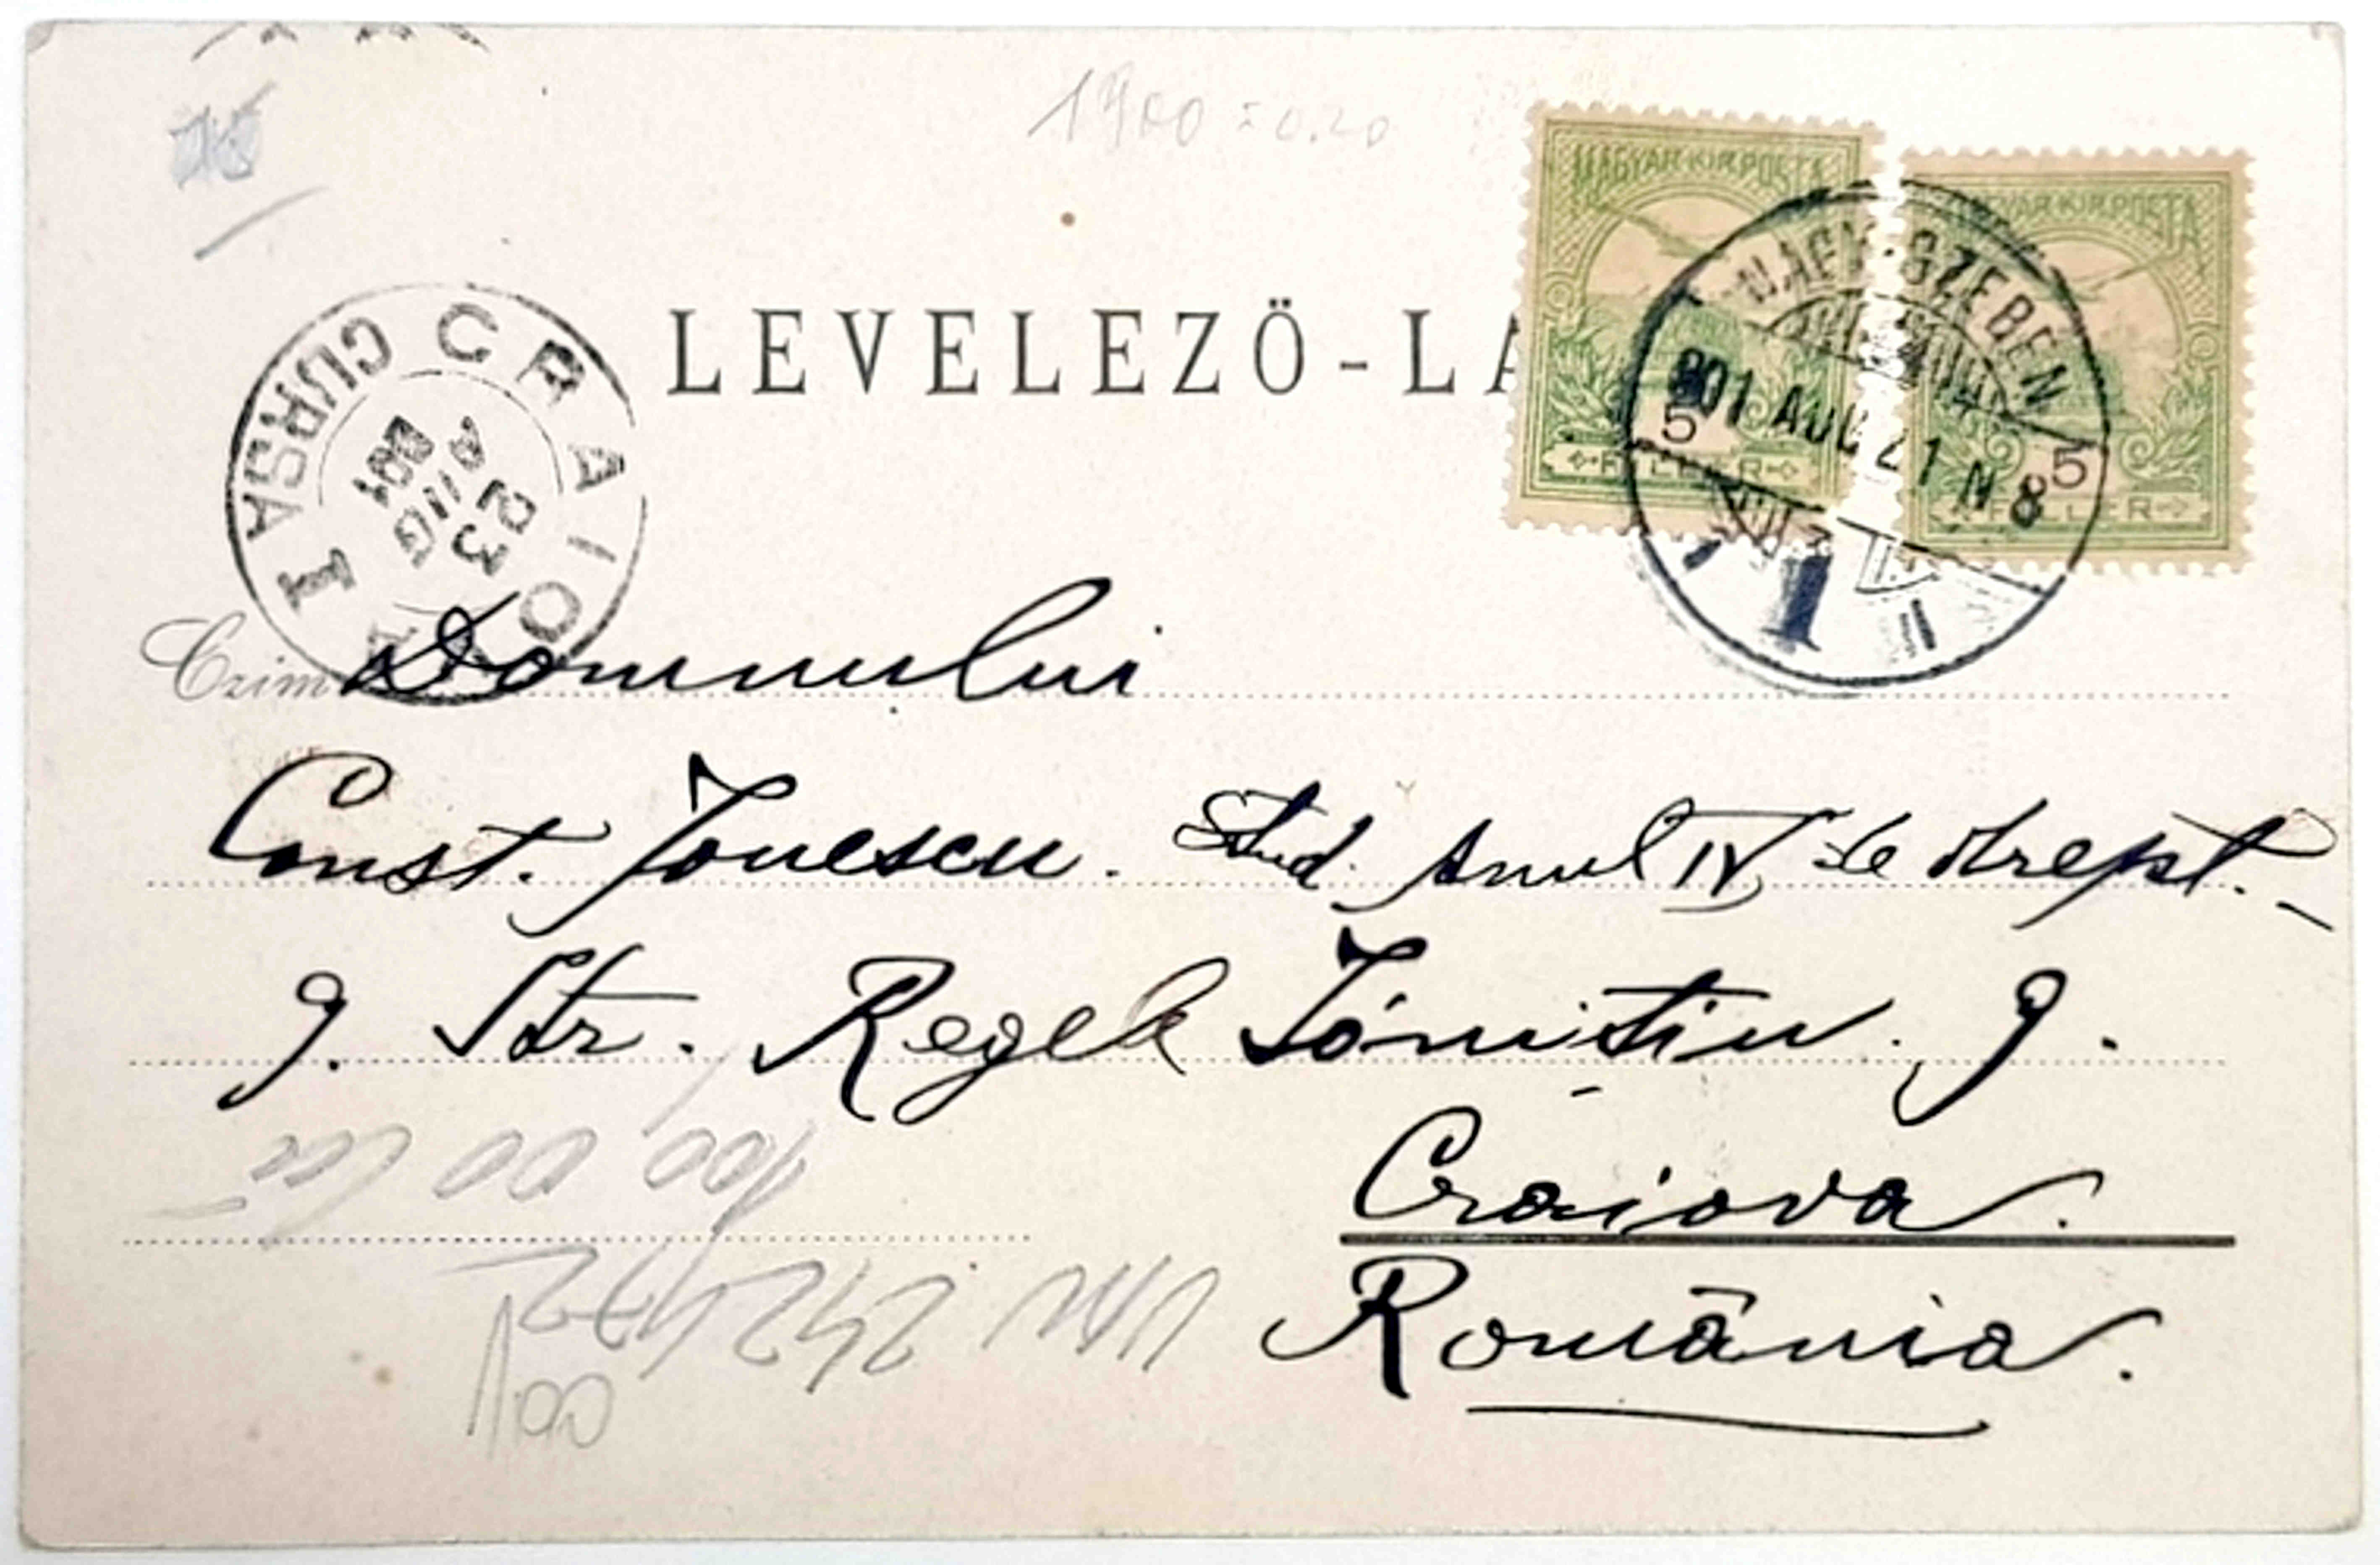 1900 = 0.20
LEVELEZŐ-LA
MAGYAR KIR. POSTA
5
FILLÉR
MAGYAR KIR. POSTA
5
FILLÉR
NAGY-SZEBEN
901 AUG 21 N 8
CRAIOVA
CURSA I
23
AUG
901
Czim Domnului
Const. Ionescu. Stud. Anul IV de drept.
9. Str. 9.
Craiova.
România.
100
242472
100